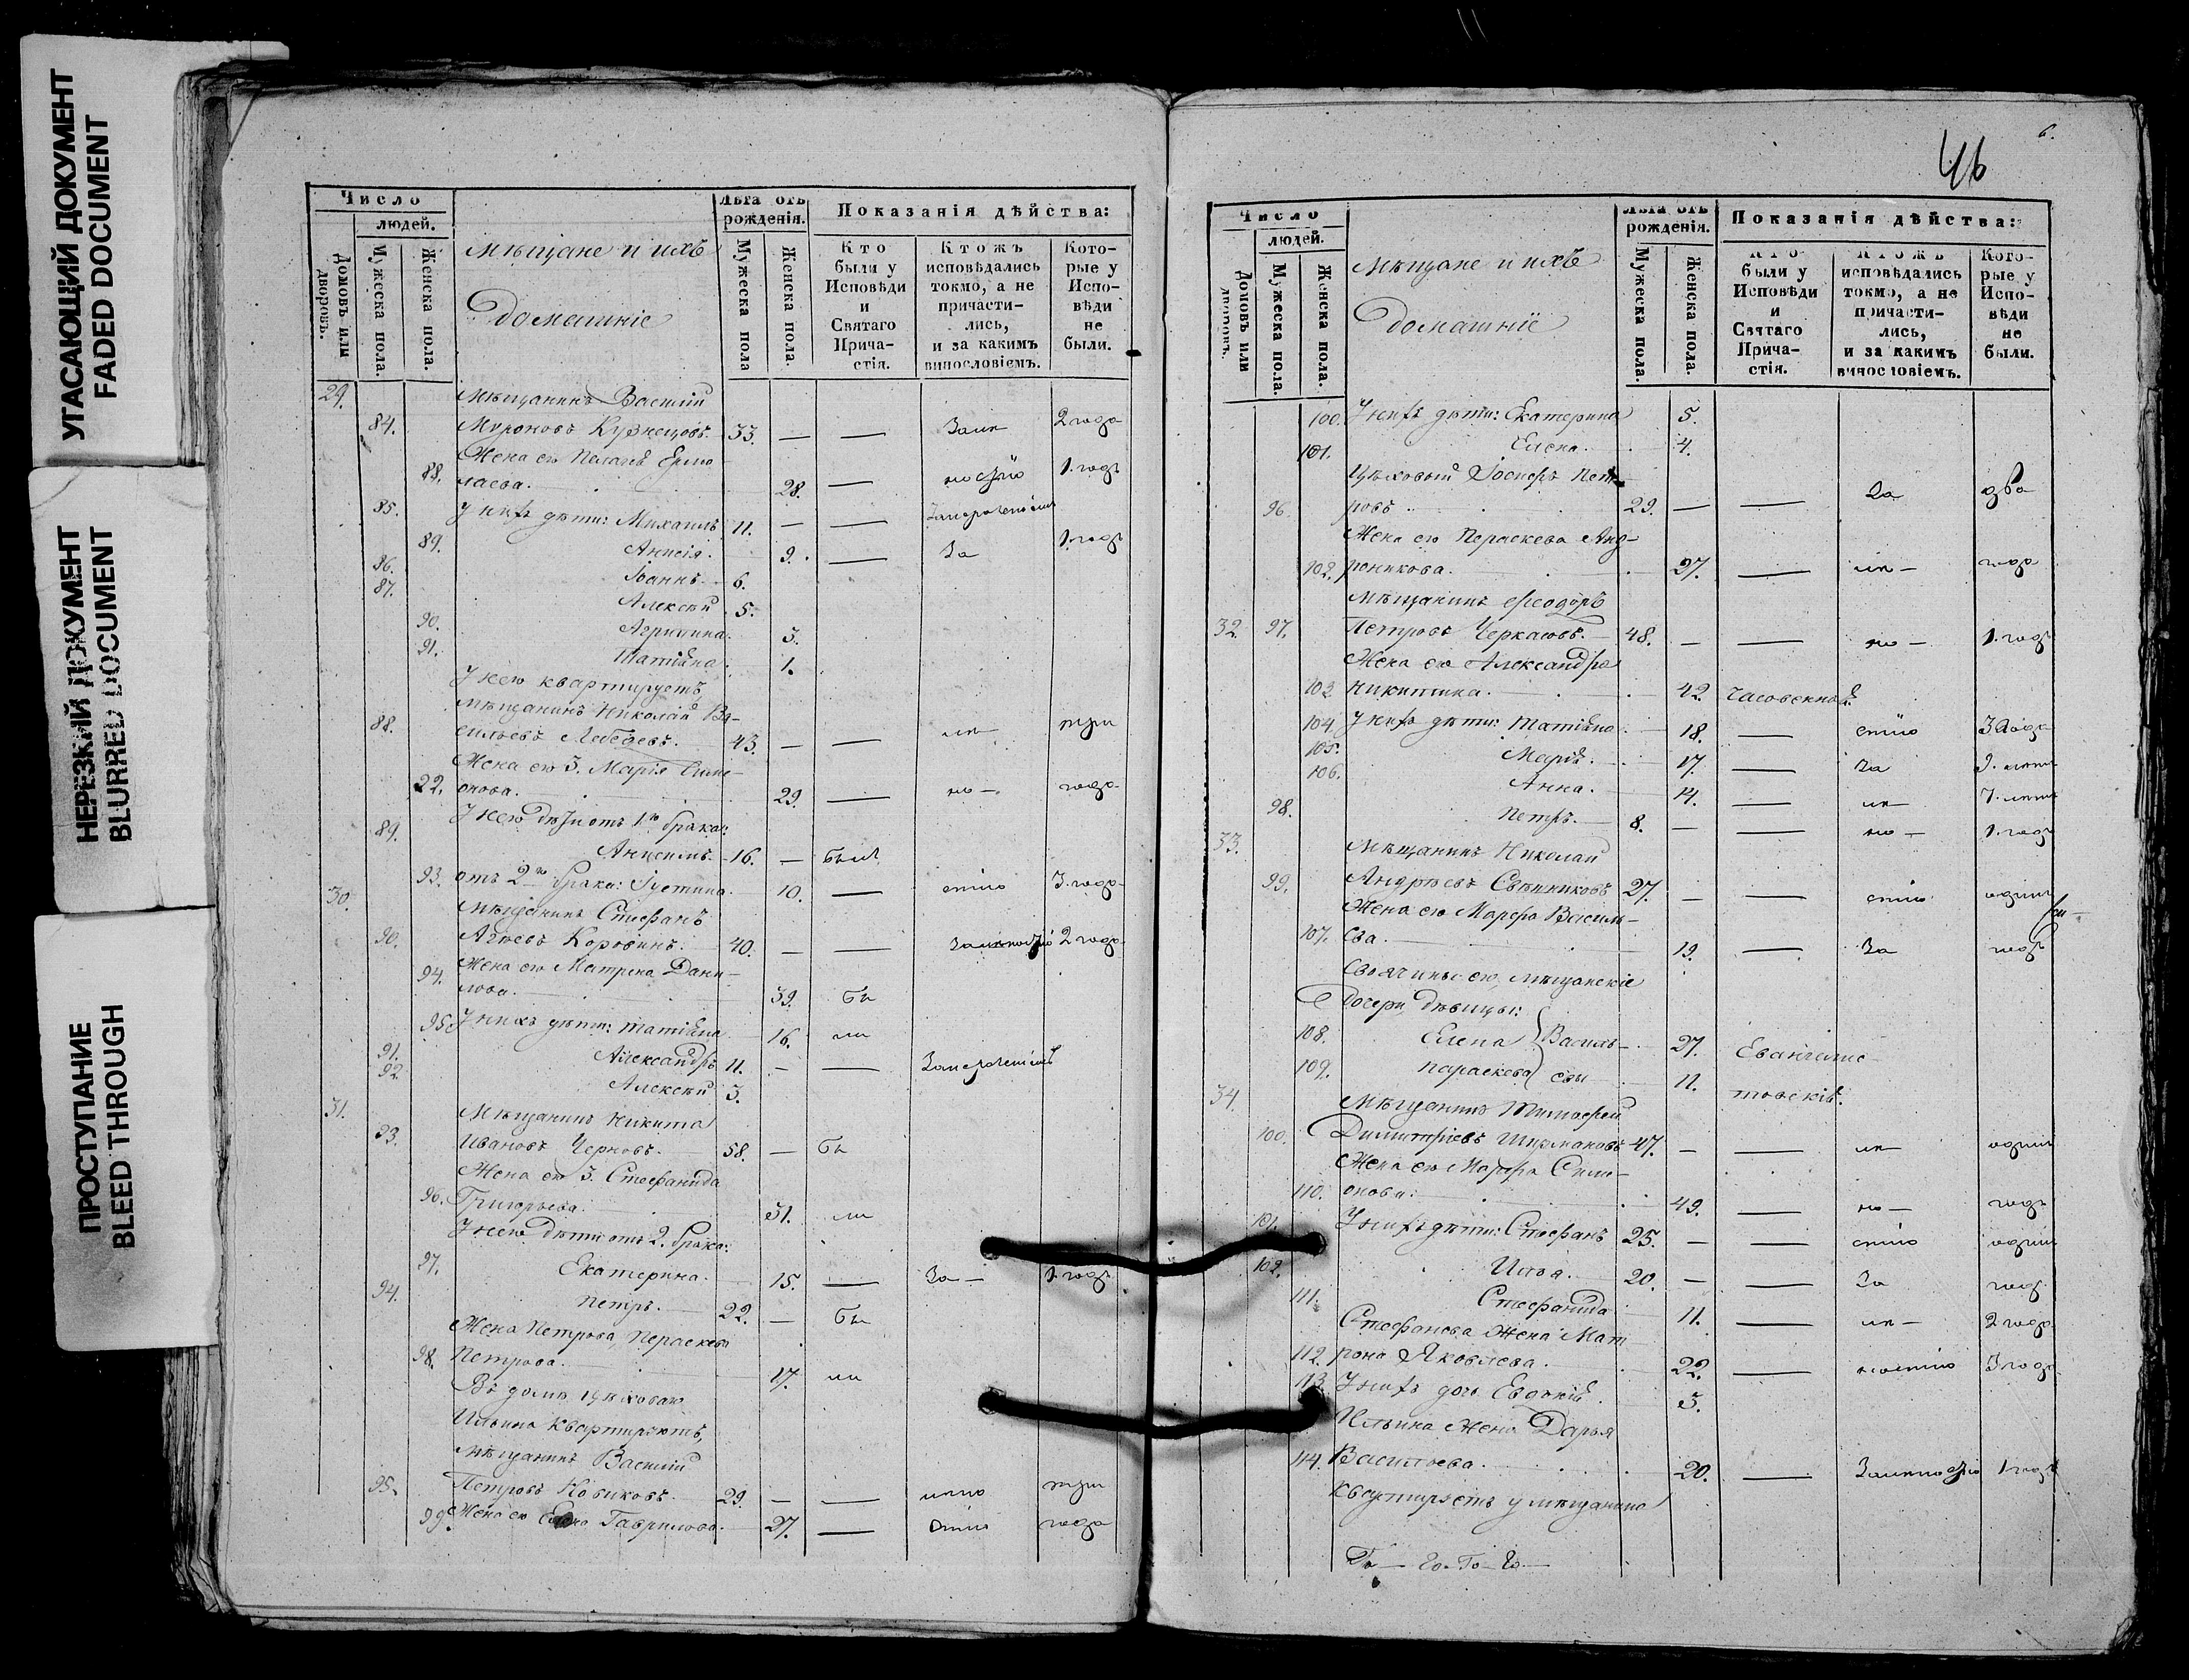 УГАСАЮЩИЙ ДОКУМЕНТ
FADED DOCUMENT
НЕРЕЗКИЙ ДОКУМЕНТ
BLURRED DOCUMENT
ПРОСТУПАНИЕ
BLEED THROUGH
Число
людей.
Домовъ или дворовъ.
Мужеска пола.
Женска пола.
Мѣщане и ихъ
Домашніе
Лѣта отъ рожденія.
Мужеска пола
Женска пола.
Показанія дѣйства:
Кто были у Исповѣди и Святаго Прича- стія.
Ктожъ исповѣдались токмо, а не причасти- лись, и за какимъ винословіемъ.
Кото- рые у Испо- вѣди не были.
29. Мѣщанинъ Василій
84. Мѵроновъ Кузнецовъ. 33. — — 2 года
Жена его Пелагѣя Ермо-
88. лаева. 28. — 1. годъ
85. У нихъ дѣти: Михаилъ 11. — —
89. Анисія. 9. — За 1. годъ
86. Іоаннъ 6.
87. Алексѣй 5.
90. Агрипина. 3.
91. Татіяна. 1.
У него квартируетъ,
мѣщанинъ Николай Ва-
88. сильевъ Лебедевъ. 43. — — три
Жена его 3. Марія Симе-
22. онова. 29. — но — года
У него дѣти от 1го брака:
89. Анисимъ. 16. — былъ
93. отъ 2го брака: Іустина. 10. — стію 3. года
30. Мѣщанинъ Стефанъ
90. Агѣевъ Коровинъ. 40. — — 2 года
94. Жена его Матрена Дани-
лова. 39. Бы
95. У нихъ дѣти: Татіяна 16. ли
91. Александръ 11. — —
92. Алексѣй 3.
31. Мѣщанинъ Никита
93. Ивановъ Черновъ. 58. — Бы
Жена его 3. Стефанида
96. Григорьева. 31. ли
У него дѣти отъ 2. брака:
97. Екатерина. 15. — За — 1. годъ
94. Петръ. 22. — Бы
Жена Петрова, Параскева
98. Петрова. 17. ли
Въ домѣ цѣховаго
Ильина квартируютъ,
мѣщанинъ Василій
95. Петровъ Новиковъ. 29. — — три
99. Жена его Елена Гаврилова. 27. — стію года
6.
46
Число
людей.
Домовъ или дворовъ.
Мужеска пола.
Женска пола.
Мѣщане и ихъ
Домашніе
Лѣта отъ рожденія.
Мужеска пола.
Женска пола.
Показанія дѣйства:
Кто были у Исповѣди и Святаго Прича- стія.
Ктожъ исповѣдались токмо, а не причасти- лись, и за какимъ винословіемъ.
Кото- рые у Испо- вѣди не были.
100. У нихъ дѣти: Екатерина 5.
101. Елена. 4.
Цѣховый Іосифъ Пет-
96. ровъ 29. — — За два
Жена его Параскева Анд-
102. роникова. 27. — ли — года
Мѣщанинъ Ѳеодоръ
32. 97. Петровъ Черкасовъ. 48. — — но — 1. годъ
Жена его Александра
103. Никитина. 42. Часовенная.
104. У нихъ дѣти: Татіяна 18. — стію 3 года
105. Марія. 17. — За 9. лѣтъ
106. Анна. 14. — ли — 7. лѣтъ
98. Петръ. 8. — — но — 1. годъ
33. Мѣщанинъ Николай
99. Андреевъ 27. — — стію одинъ
Жена его Марфа Василь-
107. ева. 19. — За годъ
Своячины его, мѣщанскіе
дочери дѣвицы:
108. Елена Василь- 27. Евангелис-
109. Параскева евы 11. товскія.
34. Мѣщанинъ Тимофей
100. Димитріевъ 47. — — ли — одинъ
Жена его Марфа Сими-
110. онова: 49. — но — годъ
101. У нихъ дѣти: Стефанъ 25. — — стію одинъ
102. Илья. 20. — — За годъ
111. Стефанида 11. — ли — 2 года
Стефанова жена Мат-
112. рона Яковлева. 22. — ностію 3 года
113. У нихъ дочь Евдокія. 3.
Ильина жена Дарья
114. Васильева. 20. — 1 годъ
Квартируетъ у мѣщанина